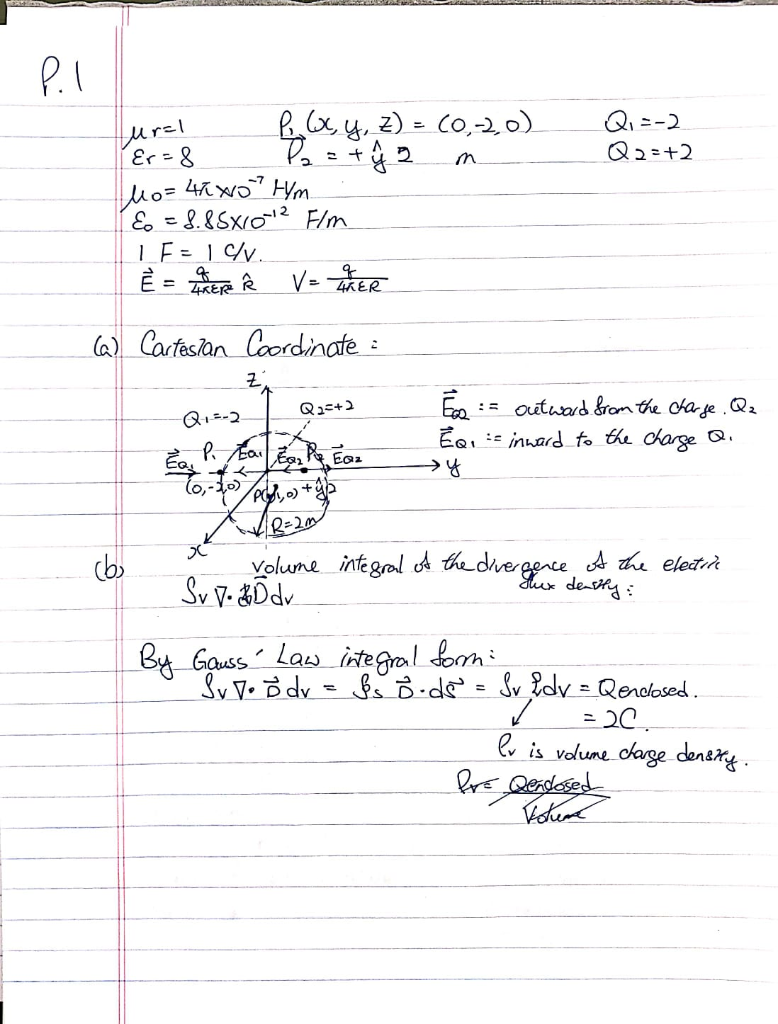 P.1
μr=1 P₁(x, y, z) = (0,-2,0) Q₁=-2
εr=8 P₂ = +ŷ2 m Q2=+2
μ₀=4π×10⁻⁷ H/m
ε₀ = 8.85×10⁻¹² F/m
1 F = 1 C/V.
E⃗ = q/4πεR² R̂ V= q/4πεR
(a) Cartesian Coordinate :
z
Q₁=-2 Q2=+2
E⃗Q2 := outward from the charge. Q₂
E⃗Q₁ := inward to the charge Q₁
E⃗Q₁ P₁ E⃗Q₁ E⃗Q2 P₂ E⃗Q2
y
(0,-2,0) +ŷ2
R=2m
x
(b) volume integral of the divergence of the electric
flux density :
∫v ∇·D⃗dv
By Gauss' Law integral form:
∫v ∇·D⃗ dv = ∮s D⃗·ds⃗ = ∫v ρvdv = Qenclosed.
= 2C.
ρv is volume charge density.
ρv= Qenclosed
Volume